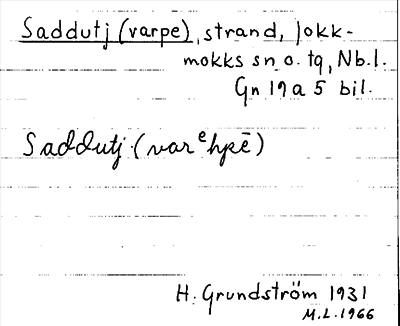 Saddutj (varpe), strand, Jokk-
mokks sn o. tg, Nb.l.
Gn 19 a 5 bil.
Saddutj (varᵉhpē)
H. Grundström 1931
M.L. 1966